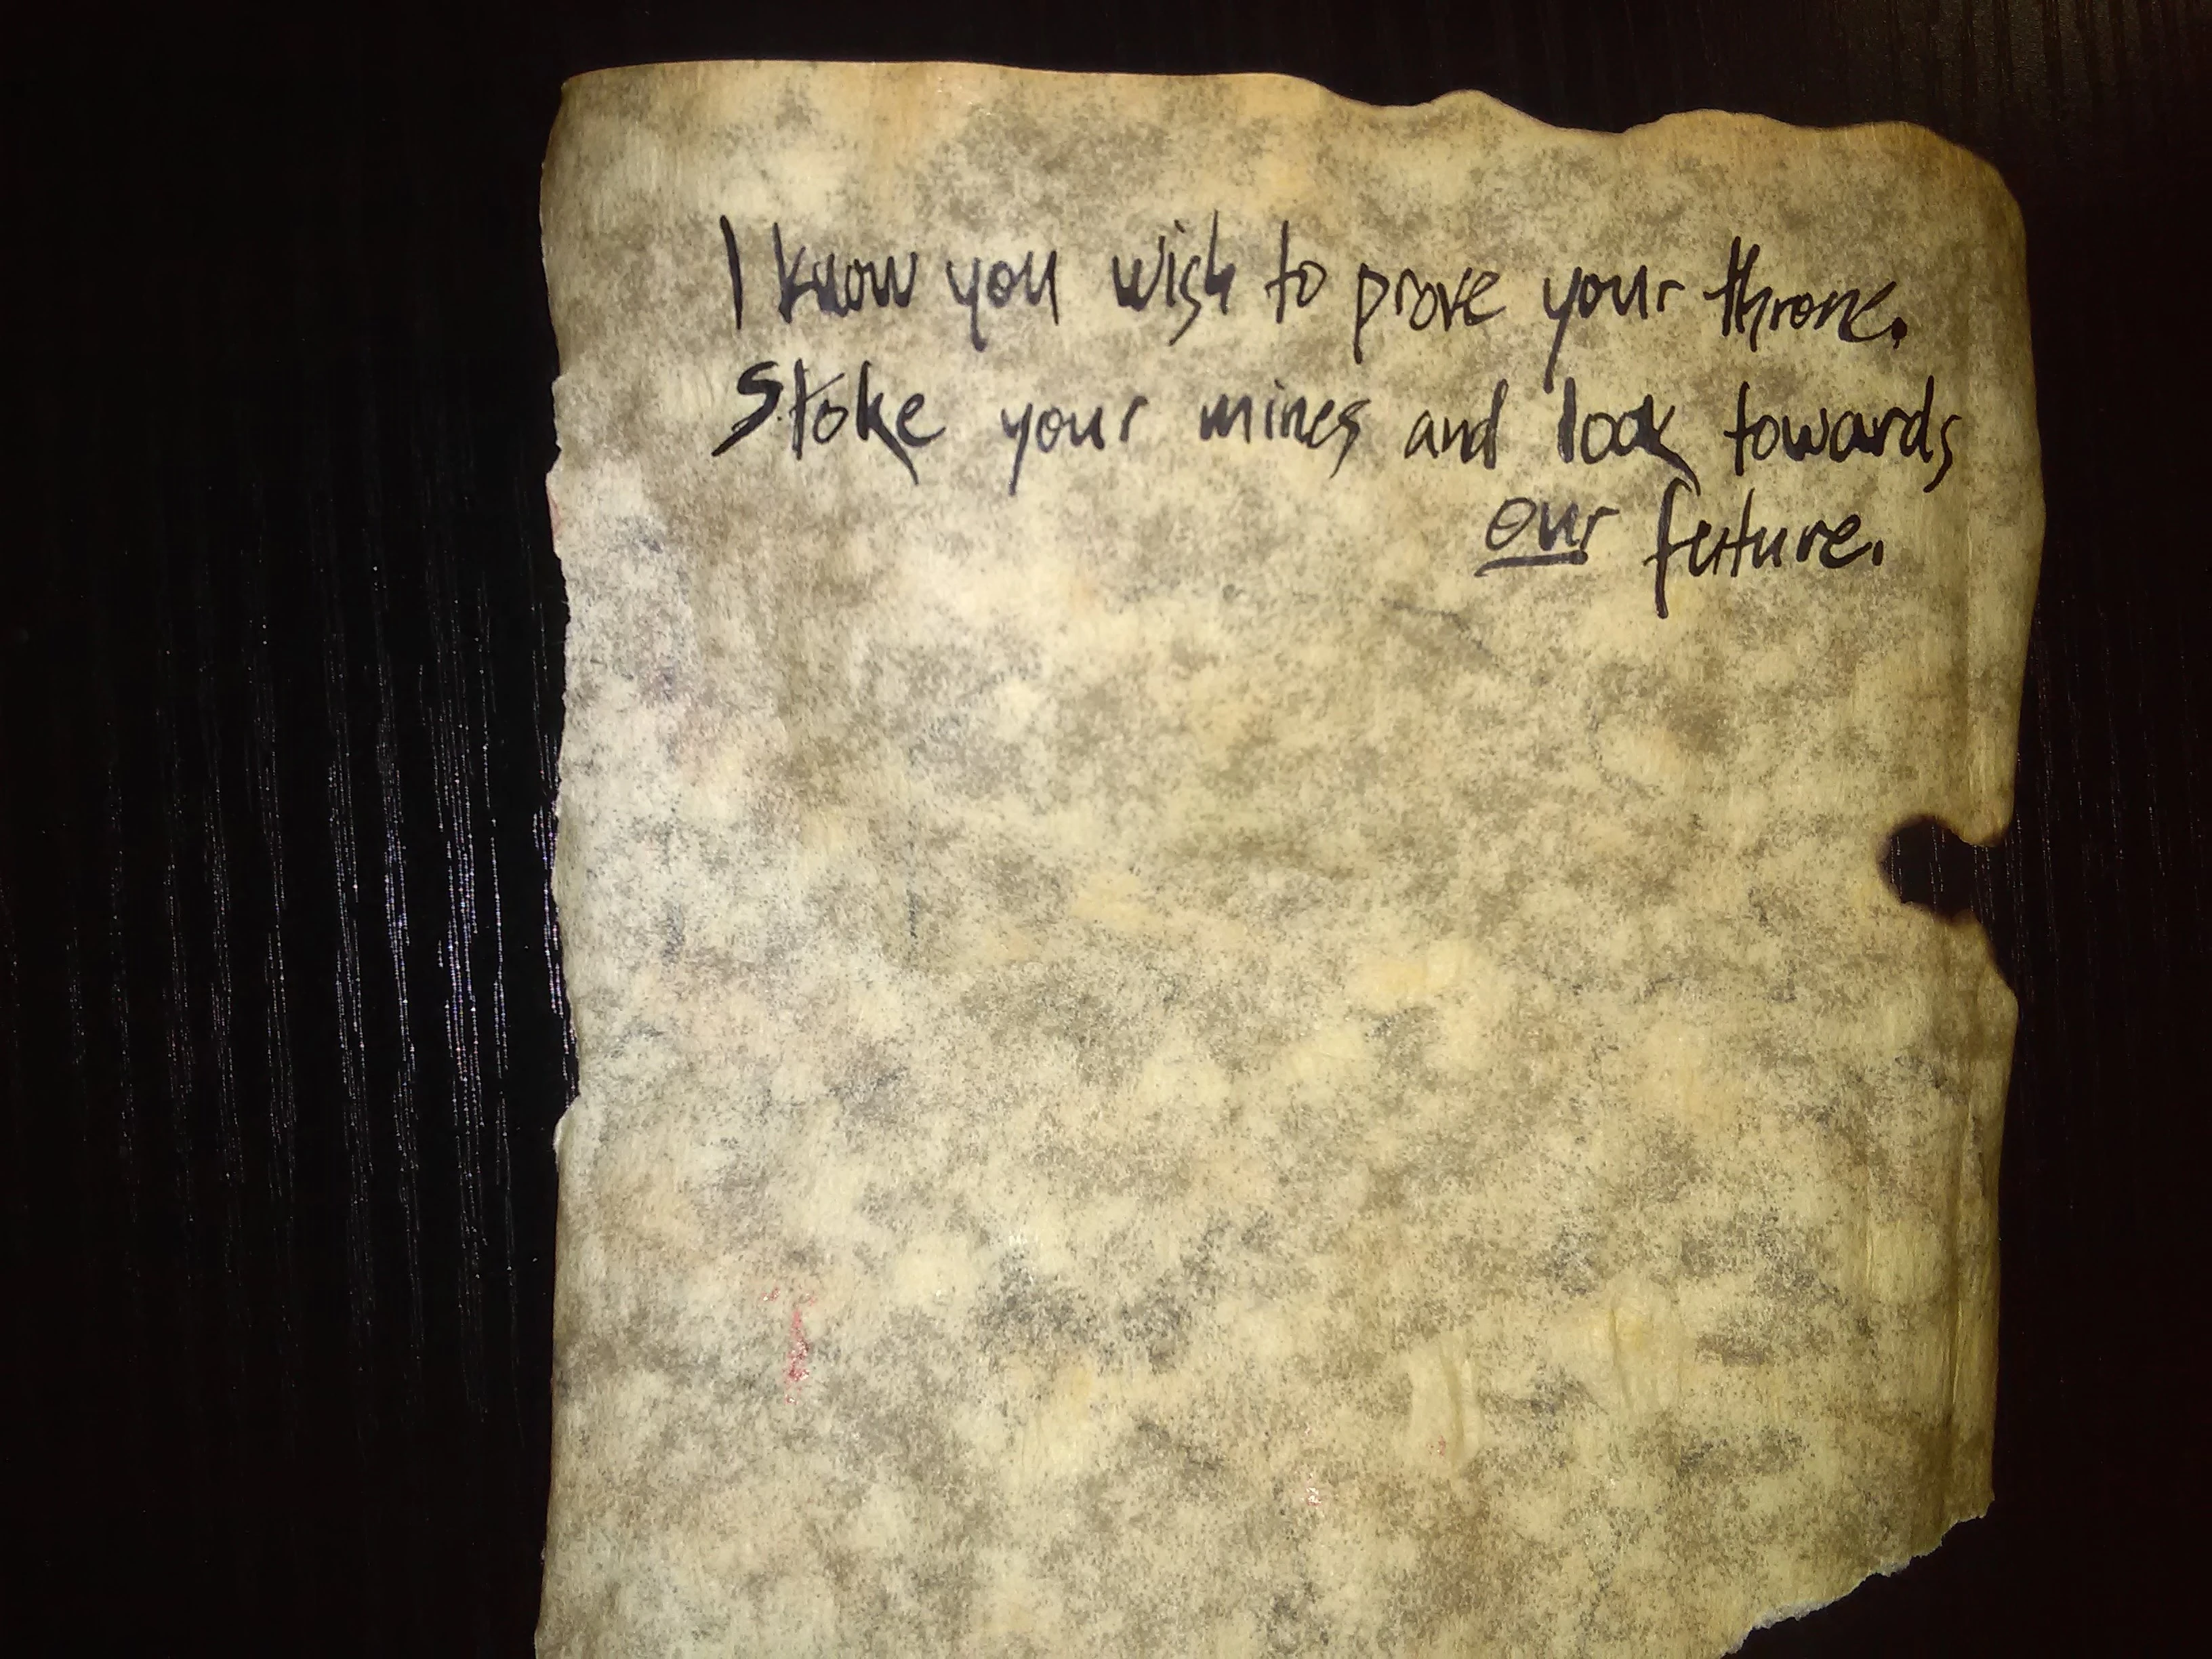 I know you wish to prove your throne.
Stoke your mines and look towards
our future.